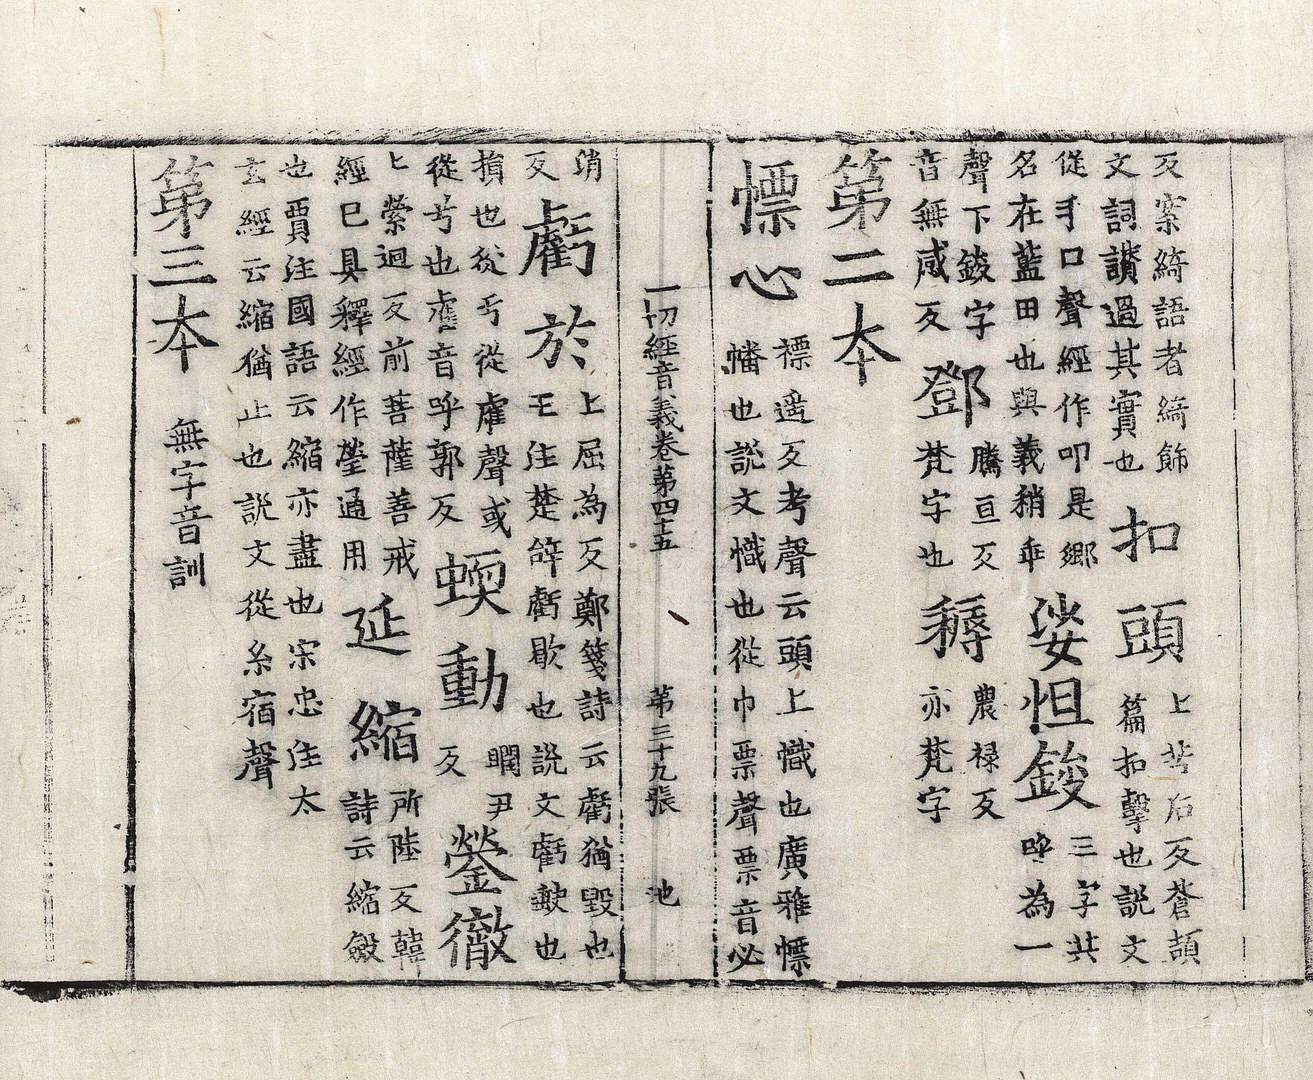 反案綺語者綺飾
文詞讃過其實也
扣頭
上苦后反蒼頡
篇扣擊也説文
從手口聲經作叩是鄉
名在藍田也與義稍乖
娑怛鋑
三字共
呼為一
聲下鋑字
音無感反
鄧
騰亘反
梵字也
耨
農禄反
亦梵字
第二本
幖心
褾遥反考聲云頭上幟也廣雅幖
幡也説文幟也從巾票聲票音必
一切經音義卷第四十五 第三十九張 池
消
反
虧於
上屈為反鄭箋詩云虧猶毀也
王注楚辝虧歇也説文虧也
損也從亏從雐聲或
從兮也虗音呼郭反
蝡動
瞤尹
反
鎣徹
上縈迥反前菩薩善戒
經已具釋經作瑩通用
延縮
所陸反韓
詩云縮斂
也賈注國語云縮亦盡也宋忠注太
玄經云縮猶止也説文從糸宿聲
第三本 無字音訓